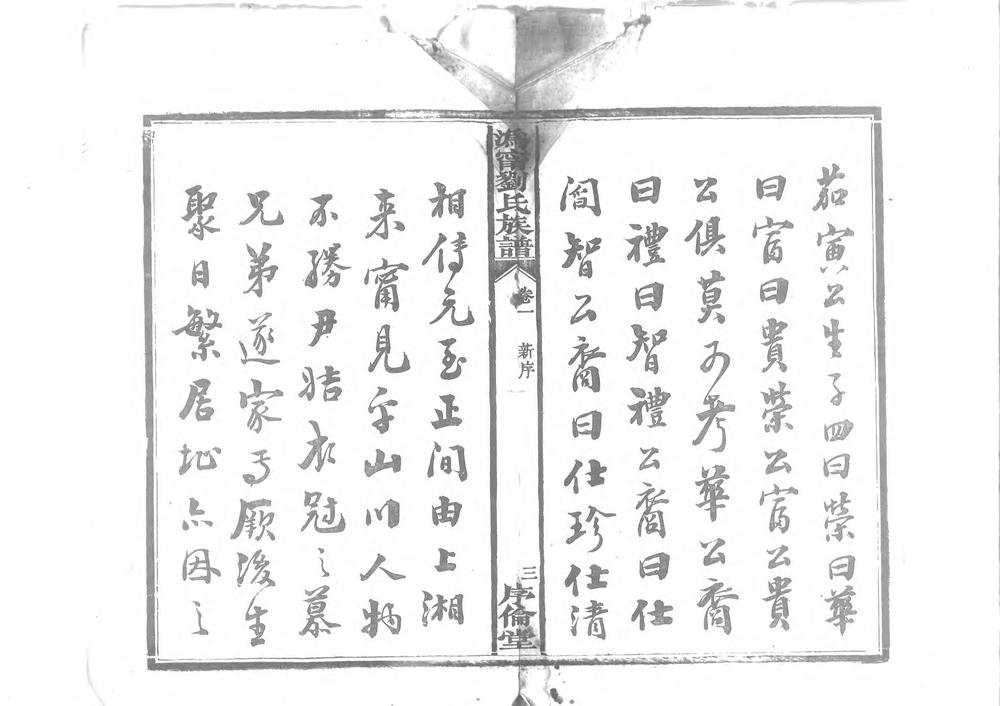 茹寅公生子四曰榮曰華
曰富曰貴榮公富公貴
公俱莫可考華公裔
曰禮曰智禮公裔曰仕
閻智公裔曰仕珍仕清
溈甯劉氏族譜
卷一
新序
三
序倫堂
相傳元至正間由上湘
來甯見乎山川人物
不勝尹姞衣冠之慕
兄弟遂家焉厥後生
聚日繁居址亦因之